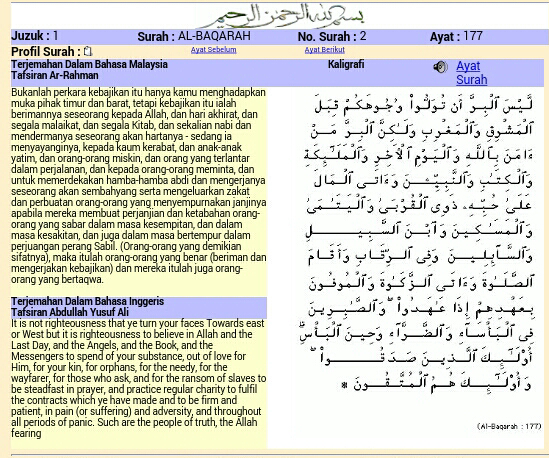 بسم الله الرحمن الرحيم
Juzuk : 1 Surah : AL-BAQARAH No. Surah : 2 Ayat : 177
Profil Surah : Ayat Sebelum Ayat Berikut
Terjemahan Dalam Bahasa Malaysia
Tafsiran Ar-Rahman
Bukanlah perkara kebajikan itu hanya kamu menghadapkan
muka pihak timur dan barat, tetapi kebajikan itu ialah
berimannya seseorang kepada Allah, dan hari akhirat, dan
segala malaikat, dan segala Kitab, dan sekalian nabi dan
mendermanya seseorang akan hartanya - sedang ia
menyayanginya, kepada kaum kerabat, dan anak-anak
yatim, dan orang-orang miskin, dan orang yang terlantar
dalam perjalanan, dan kepada orang-orang meminta, dan
untuk memerdekakan hamba-hamba abdi dan mengerjanya
seseorang akan sembahyang serta mengeluarkan zakat
dan perbuatan orang-orang yang menyempurnakan janjinya
apabila mereka membuat perjanjian dan ketabahan orang-
orang yang sabar dalam masa kesempitan, dan dalam
masa kesakitan, dan juga dalam masa bertempur dalam
perjuangan perang Sabil. (Orang-orang yang demikian
sifatnya), maka itulah orang-orang yang benar (beriman dan
mengerjakan kebajikan) dan mereka itulah juga orang-
orang yang bertaqwa.
Terjemahan Dalam Bahasa Inggeris
Tafsiran Abdullah Yusuf Ali
It is not righteousness that ye turn your faces Towards east
or West but it is righteousness to believe in Allah and the
Last Day, and the Angels, and the Book, and the
Messengers to spend of your substance, out of love for
Him, for your kin, for orphans, for the needy, for the
wayfarer, for those who ask, and for the ransom of slaves to
be steadfast in prayer, and practice regular charity to fulfil
the contracts which ye have made and to be firm and
patient, in pain (or suffering) and adversity, and throughout
all periods of panic. Such are the people of truth, the Allah
fearing
Kaligrafi
Ayat
Surah
لَّيْسَ ٱلْبِرَّ أَن تُوَلُّوا۟ وُجُوهَكُمْ قِبَلَ
ٱلْمَشْرِقِ وَٱلْمَغْرِبِ وَلَـٰكِنَّ ٱلْبِرَّ مَنْ
ءَامَنَ بِٱللَّهِ وَٱلْيَوْمِ ٱلْأَخِرِ وَٱلْمَلَـٰٓئِكَةِ
وَٱلْكِتَـٰبِ وَٱلنَّبِيِّـۧنَ وَءَاتَى ٱلْمَالَ
عَلَىٰ حُبِّهِۦ ذَوِى ٱلْقُرْبَىٰ وَٱلْيَتَـٰمَىٰ
وَٱلْمَسَـٰكِينَ وَٱبْنَ ٱلسَّبِيلِ
وَٱلسَّآئِلِينَ وَفِى ٱلرِّقَابِ وَأَقَامَ
ٱلصَّلَوٰةَ وَءَاتَى ٱلزَّكَوٰةَ وَٱلْمُوفُونَ
بِعَهْدِهِمْ إِذَا عَـٰهَدُوا۟ ۖ وَٱلصَّـٰبِرِينَ
فِى ٱلْبَأْسَآءِ وَٱلضَّرَّآءِ وَحِينَ ٱلْبَأْسِ ۗ
أُو۟لَـٰٓئِكَ ٱلَّذِينَ صَدَقُوا۟ ۖ
وَأُو۟لَـٰٓئِكَ هُمُ ٱلْمُتَّقُونَ *
(Al-Baqarah : 177)